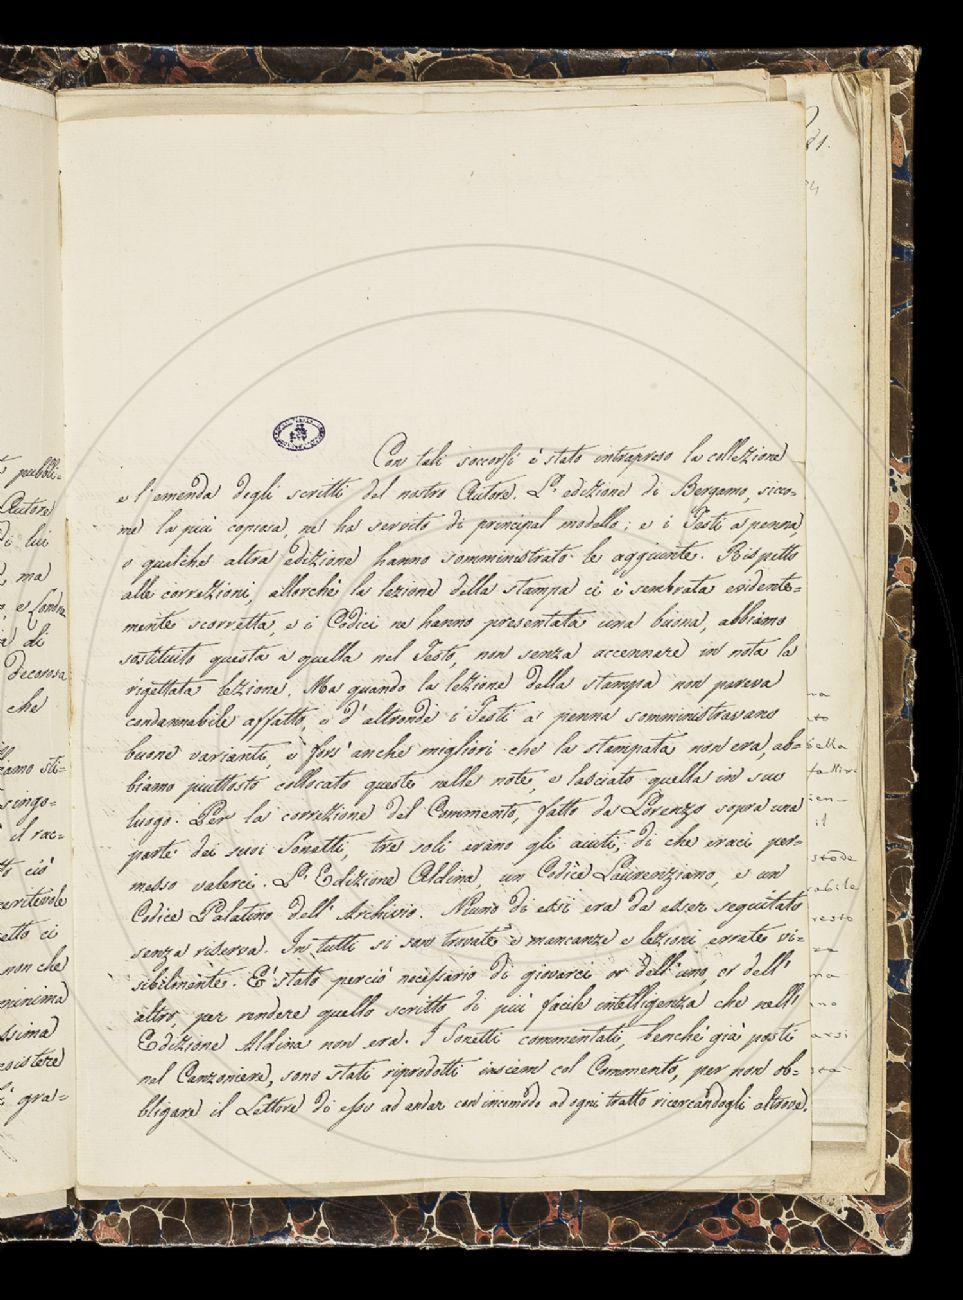 Con tali soccorsi è stato intrapreso la collezione
e l'emenda degli scritti del nostro Autore. L'edizione di Bergamo, sicco=
me la più copiosa, ne ha servito di principal modello; e i Testi a penna,
o qualche altra edizione hanno somministrato le aggiunte. Rispetto
alle correzioni, allorchè la lezione della stampa ci è sembrata evidente=
mente scorretta, e i Codici ne hanno presentata una buona, abbiamo
sostituito questa a quella nel Testo, non senza accennare in nota la
rigettata lezione. Ma quando la lezione della stampa non pareva
condannabile affatto, e d'altronde i Testi a penna somministravano
buone varianti, e fors' anche migliori che la stampata non era, ab=
biamo piuttosto collocato queste nelle note, e lasciato quella in suo
luogo. Per la correzione del Commento, fatto da Lorenzo sopra una
parte dei suoi Sonetti, tre soli erano gli aiuti, di che eraci per=
messo valerci. L'Edizione Aldina, un Codice Laurenziano, e un
Codice Palatino dell'Archivio. Niuno di essi era da esser seguitato
senza riserva. In tutti si son trovate e mancanze e lezioni errate vi=
sibilmente. E' stato perciò necessario di giovarci or dell'uno, or dell'
altro, per rendere quello scritto di più facile intelligenza che nell'
Edizione Aldina non era. I Sonetti commentati, benchè già posti
nel Canzoniere, sono stati riprodotti insiem col Commento, per non ob=
bligare il Lettore di esso ad andar con incomodo ad ogni tratto ricercandogli altrove.
pubbli=
Autore
di lui
ma
e Londra
di
decorosa
che
singo=
il rac=
ciò
non che
gra=
81.